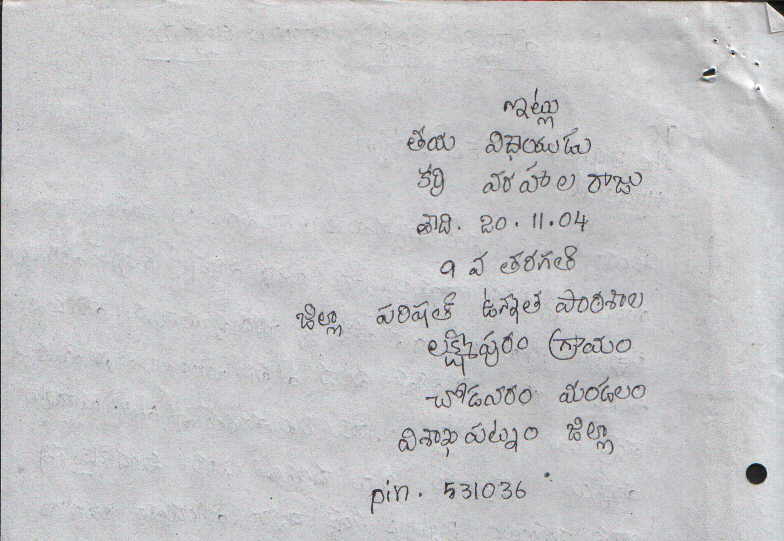 ఇట్లు
తమ విధాయుడు
కర్రి వరహాల రాజు
తాది. 20.11.04
9 వ తరగతి
జిల్లా పరిషత్ ఉన్నత పాఠశాల
లక్ష్మీపురం గ్రామం
చోడవరం మండలం
విశాఖపట్నం జిల్లా
pin. 531036